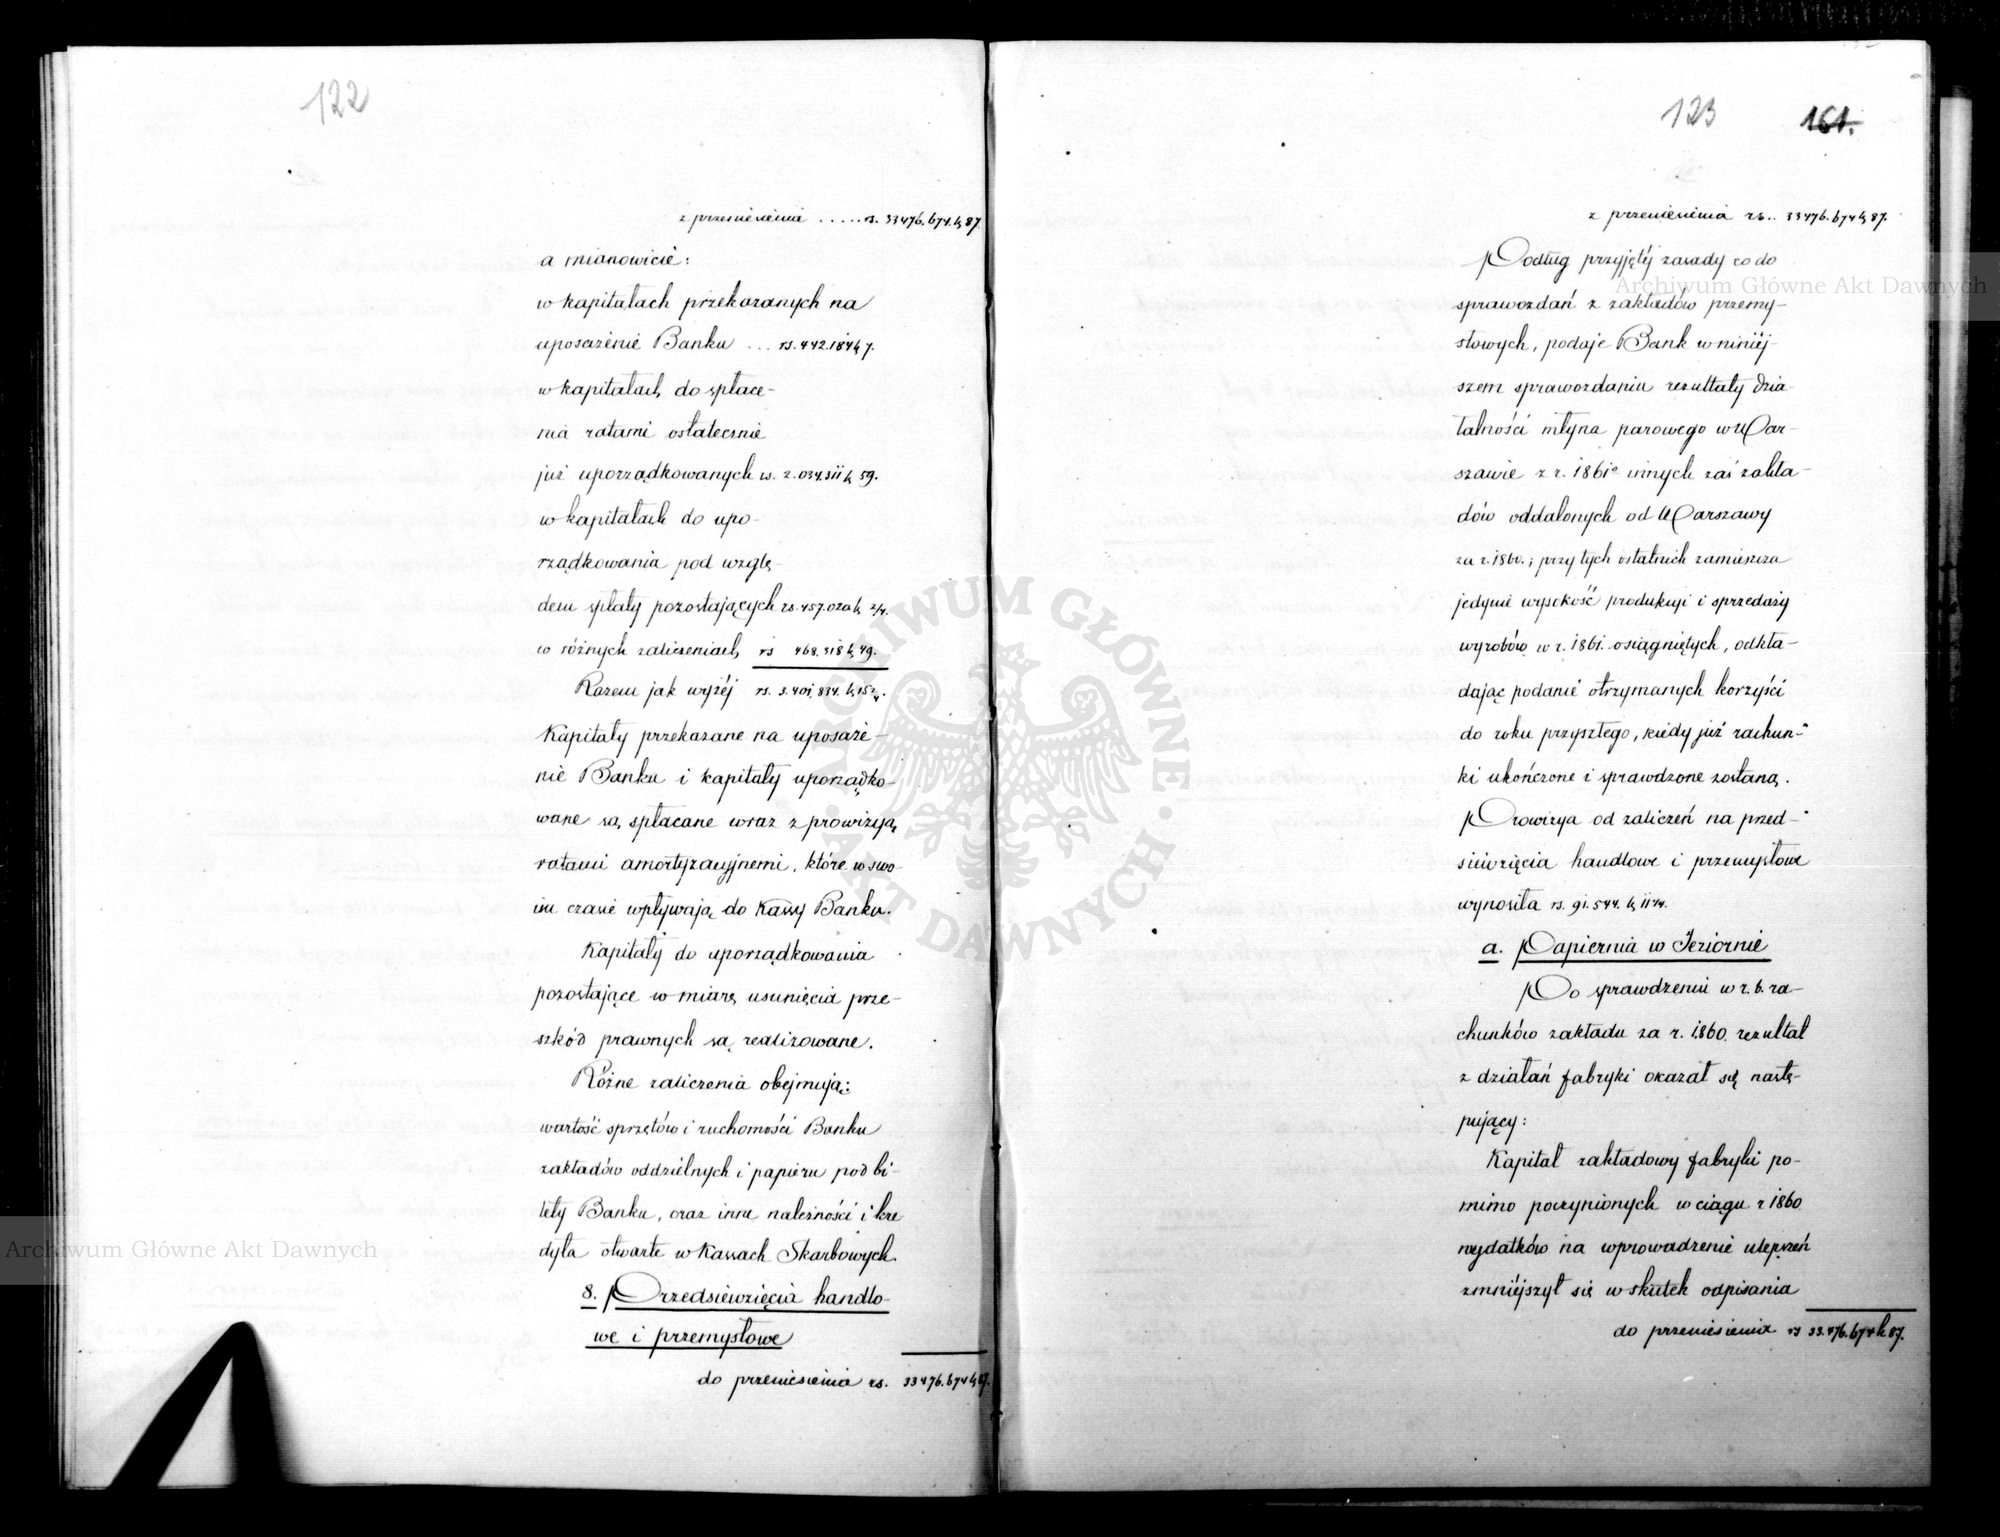 122
z przeniesienia ..... rs. 33476.674.k 87.
a mianowicie:
w kapitałach przekazanych na
uposażenie Banku ... rs. 442.184 k 7.
w kapitałach do spłace-
nia ratami ostatecznie
już uporządkowanych rs. 2.034.311 k 59.
w kapitałach do upo-
rządkowania pod wzglę-
dem spłaty pozostających rs. 457.020 k
w różnych zaliczeniach rs 468.318 k 49.
Razem jak wyżej rs. 3.401.834. k 15
Kapitały przekazane na uposaże-
nie Banku i kapitały uporządko-
wane są spłacane wraz z prowizyą
ratami amortyzacyjnemi, które w swo-
im czasie wpływają do Kassy Banku.
Kapitały do uporządkowania
pozostające w miarę usunięcia prze-
szkód prawnych są realizowane.
Różne zaliczenia obejmują:
wartość sprzętów i ruchomości Banku
zakładów oddzielnych i papieru pod bi-
lety Banku, oraz inne należności i kre
dyta otwarte w Kassach Skarbowych.
8. Przedsiewzięcia handlo-
we i przemysłowe
do przeniesienia rs. 33476.674 k 87.
123 161.
z przeniesienia rs.. 33476.674 k 87.
Podług przyjętéj zasady co do
sprawozdań z zakładów przemy-
słowych, podaje Bank w niniéj-
szem sprawozdaniu rezultaty dzia-
łalności młyna parowego w War-
szawie z r. 1861º innych zaś zakła-
dów oddalonych od Warszawy
za r. 1860.; przy tych ostatnich zamieszcza
jedynie wysokość produkcyi i sprzedaży
wyrobów w r. 1861. osiągniętych, odkła-
dając podanie otrzymanych korzyści
do roku przyszłego, kiedy już rachun-
ki ukończone i sprawdzone zostaną.
Prowizya od zaliczeń na przed-
siewzięcia handlowe i przemysłowe
wynosiła rs. 91.544. k 11
a. Papiernia w Jeziornie
Po sprawdzeniu w r. b. ra-
chunków zakładu za r. 1860. rezultat
z działań fabryki okazał się nastę-
pujący:
Kapitał zakładowy fabryki po-
mimo poczynionych w ciągu r 1860
wydatków na wprowadzenie ulepszeń
zmniéjszył się w skutek odpisania
do przeniesienia rs 33.476.674 k 87.
ARCHIWUM GŁÓWNE AKT DAWNYCH
Archiwum Główne Akt Dawnych
Archiwum Główne Akt Dawnych